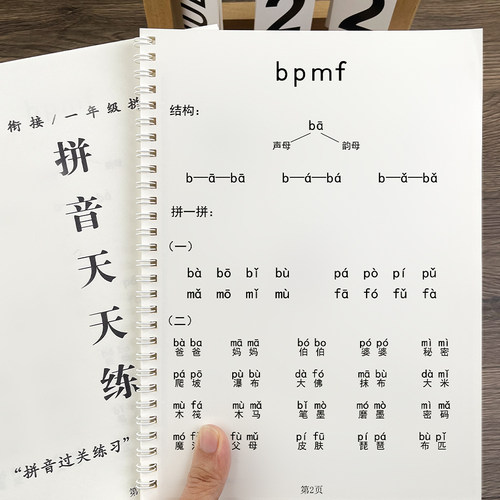 衔接/一年级拼
拼音天天练
"拼音过关练习"
bpmf
结构：
bā
声母 韵母
b—ā—bā b—á—bá b—ǎ—bǎ
拼一拼：
（一）
bà bō bǐ bù pá pò pí pǔ
mǎ mō mǐ mù fā fó fǔ fà
（二）
bà ba mā mā bó bo pó pó mì mì
爸爸 妈妈 伯伯 婆婆 秘密
pá pō pù bù dà fó mā bù dà mǐ
爬坡 瀑布 大佛 抹布 大米
mù fá mù mǎ bǐ mò mó mò mì mǎ
木筏 木马 笔墨 磨墨 密码
mó fù mǔ pí fū pí pá bù pǐ
魔 父母 皮肤 琵琶 布匹
第2页
第